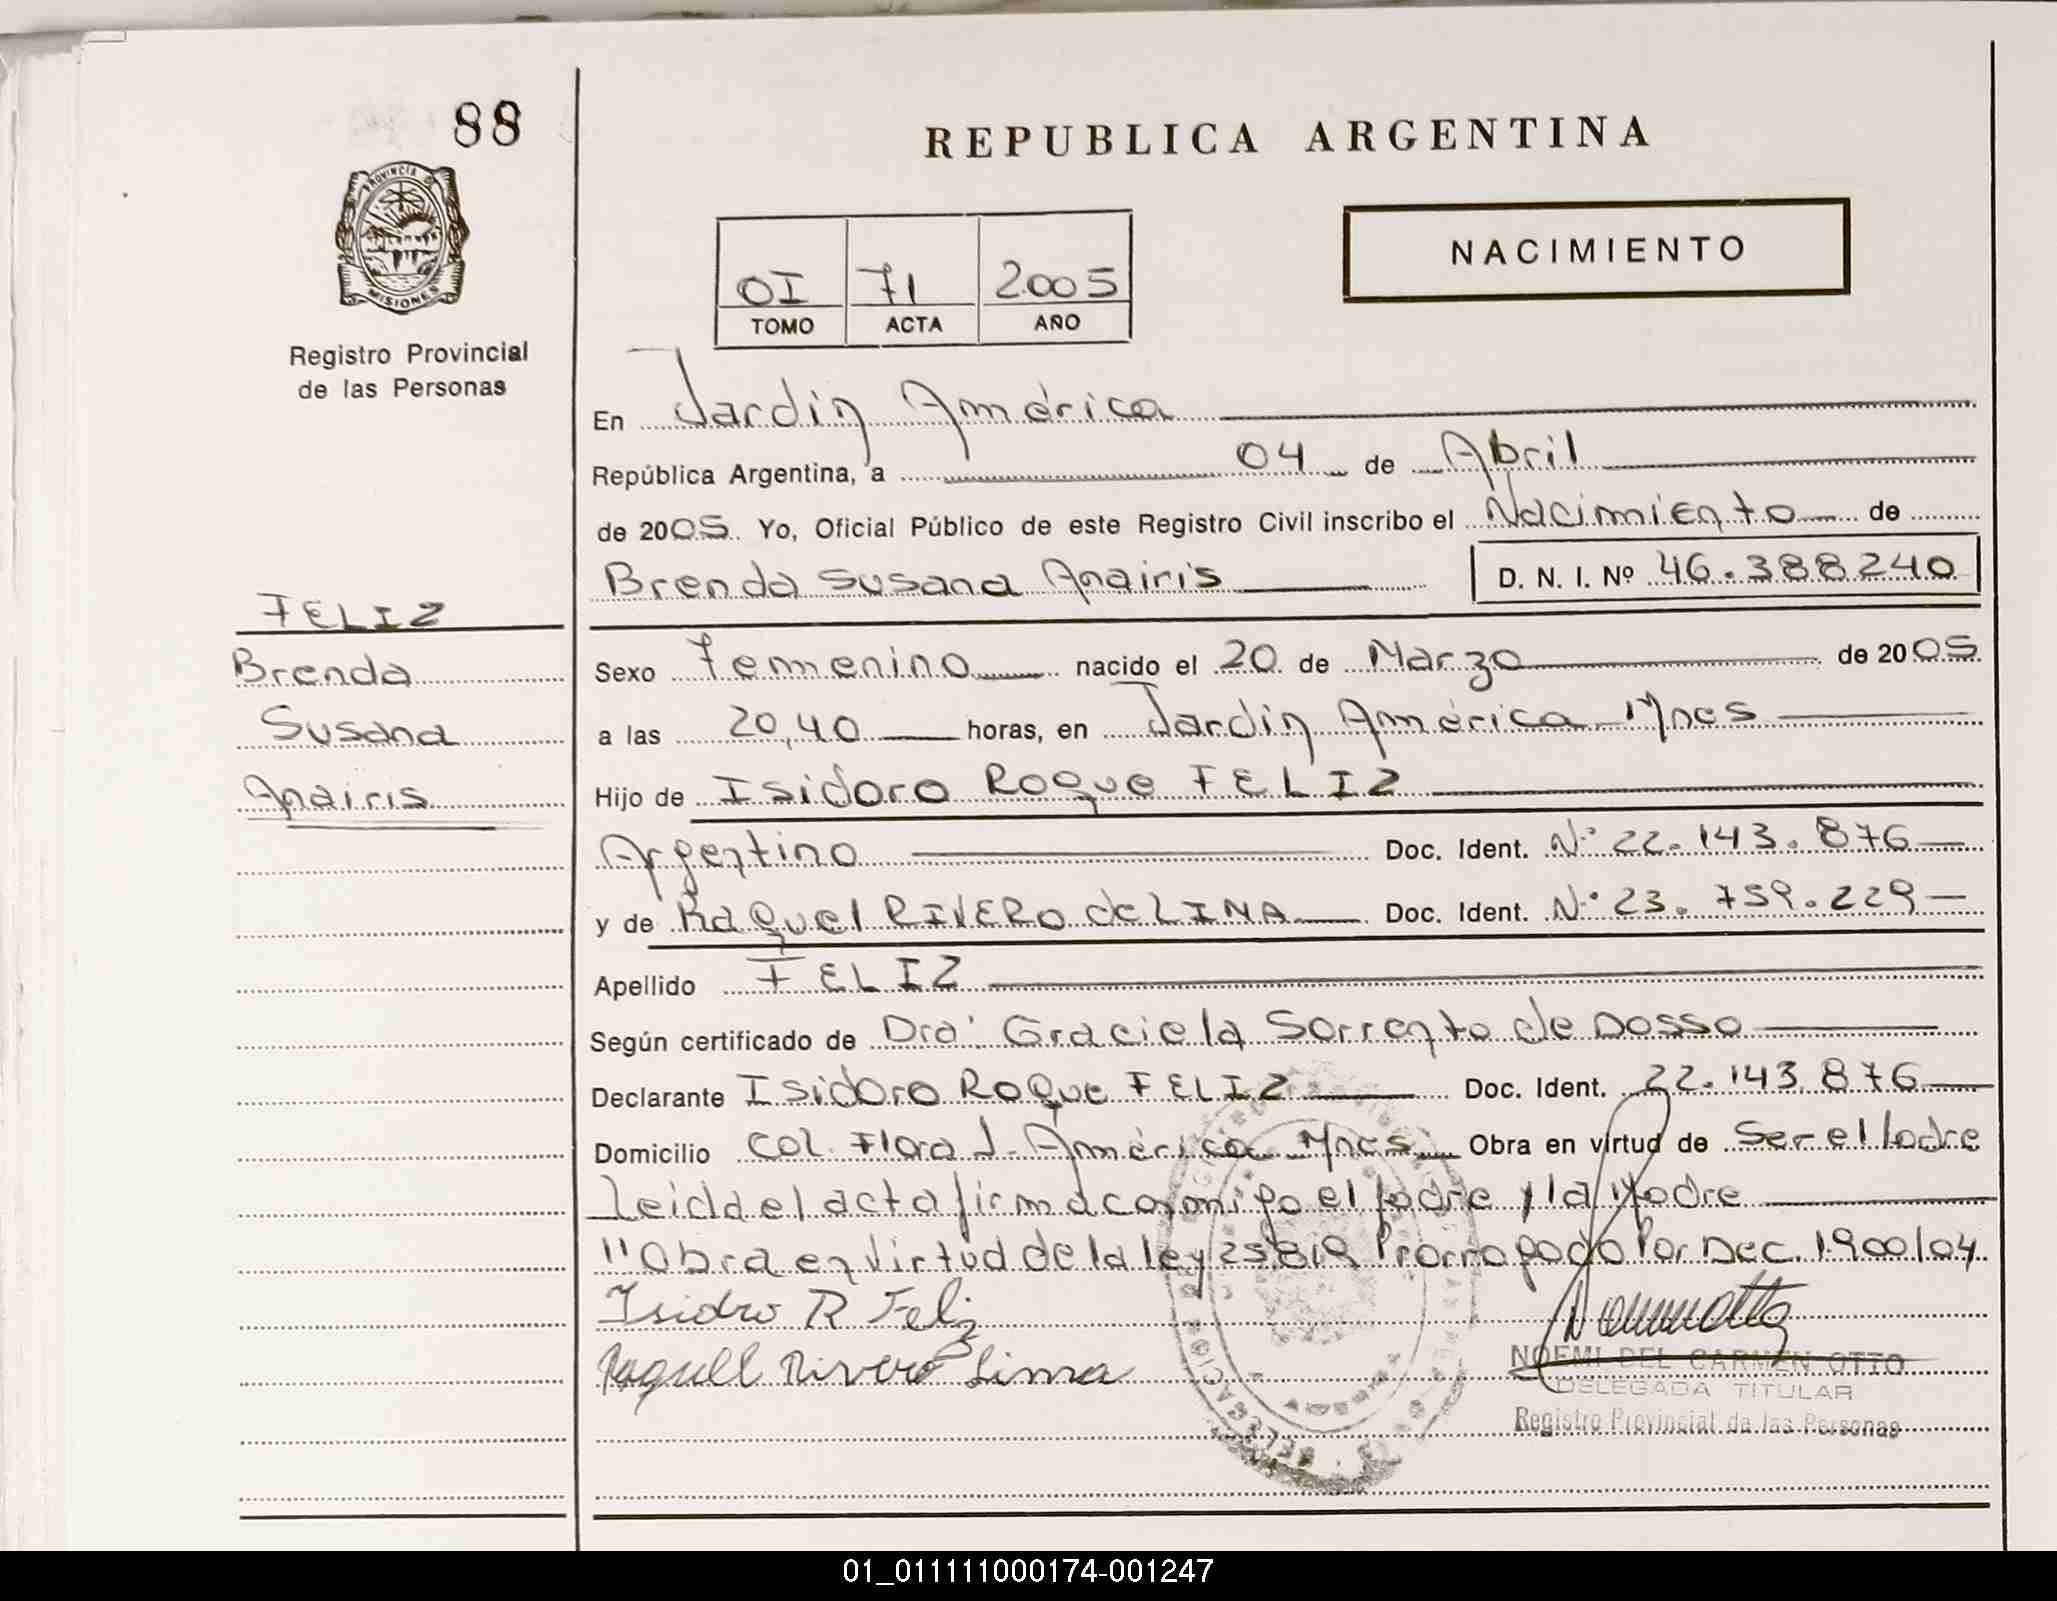 88
PROVINCIA DE
MISIONES
Registro Provincial
de las Personas
REPUBLICA ARGENTINA
NACIMIENTO
OI 71 2005
TOMO ACTA AÑO
En Jardin América
República Argentina, a 04 de Abril
de 2005 Yo, Oficial Público de este Registro Civil inscribo el Nacimiento de
Brenda Susana Anairis D. N. I. Nº 46.388240
FELIZ
Brenda
Susana
Anairis
Sexo Femenino nacido el 20 de Marzo de 2005
a las 20,40 horas, en Jardin América Mnes
Hijo de Isidoro Roque FELIZ
Argentino Doc. Ident. Nº 22.143.876
y de Raquel RIVERO de LIMA Doc. Ident. Nº 23.759.229
Apellido FELIZ
Según certificado de Dra. Graciela Sorrento de Dosso
Declarante Isidoro Roque FELIZ Doc. Ident. 22.143.876
Domicilio Col. Flora J. América Mnes Obra en virtud de Ser el Padre
Leida el acta firma conmigo el Padre y la Madre
"Obra en virtud de la ley 25.819 Prorrogado Por Dec. 1900/04
Isidro R Feliz
Raquell Rivero Lima
NOEMI DEL CARMEN OTTO
DELEGADA TITULAR
Registro Provincial de las Personas
01_011111000174-001247